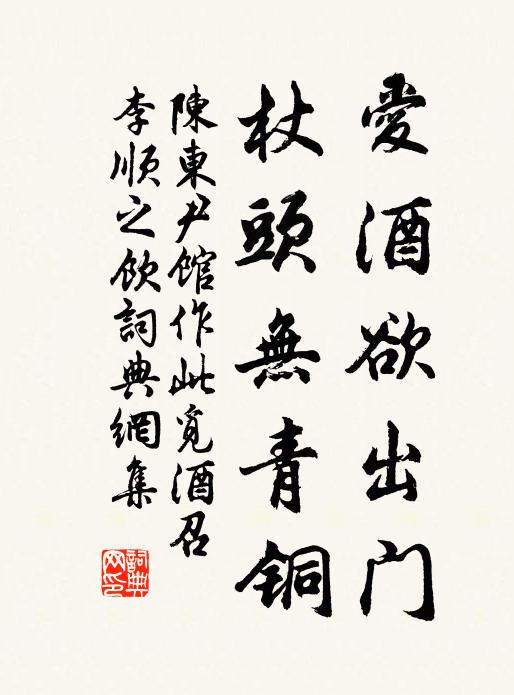 愛酒欲出門
杖頭無青銅
陳東尹館作此覓酒召
李順之飲詞典網集
詞典网印